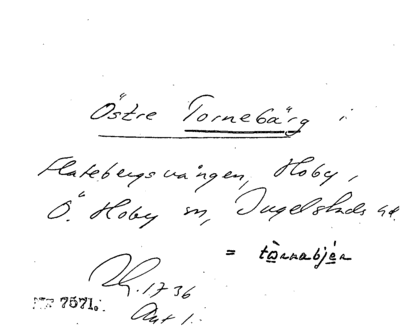 Östre Tornebärg i
Flatebergsvången, Hoby,
Ö. Hoby sn, Ingelstads hd.
= tò̱rnabjæ̀r
1736
Akt 1.
Nr 7571.